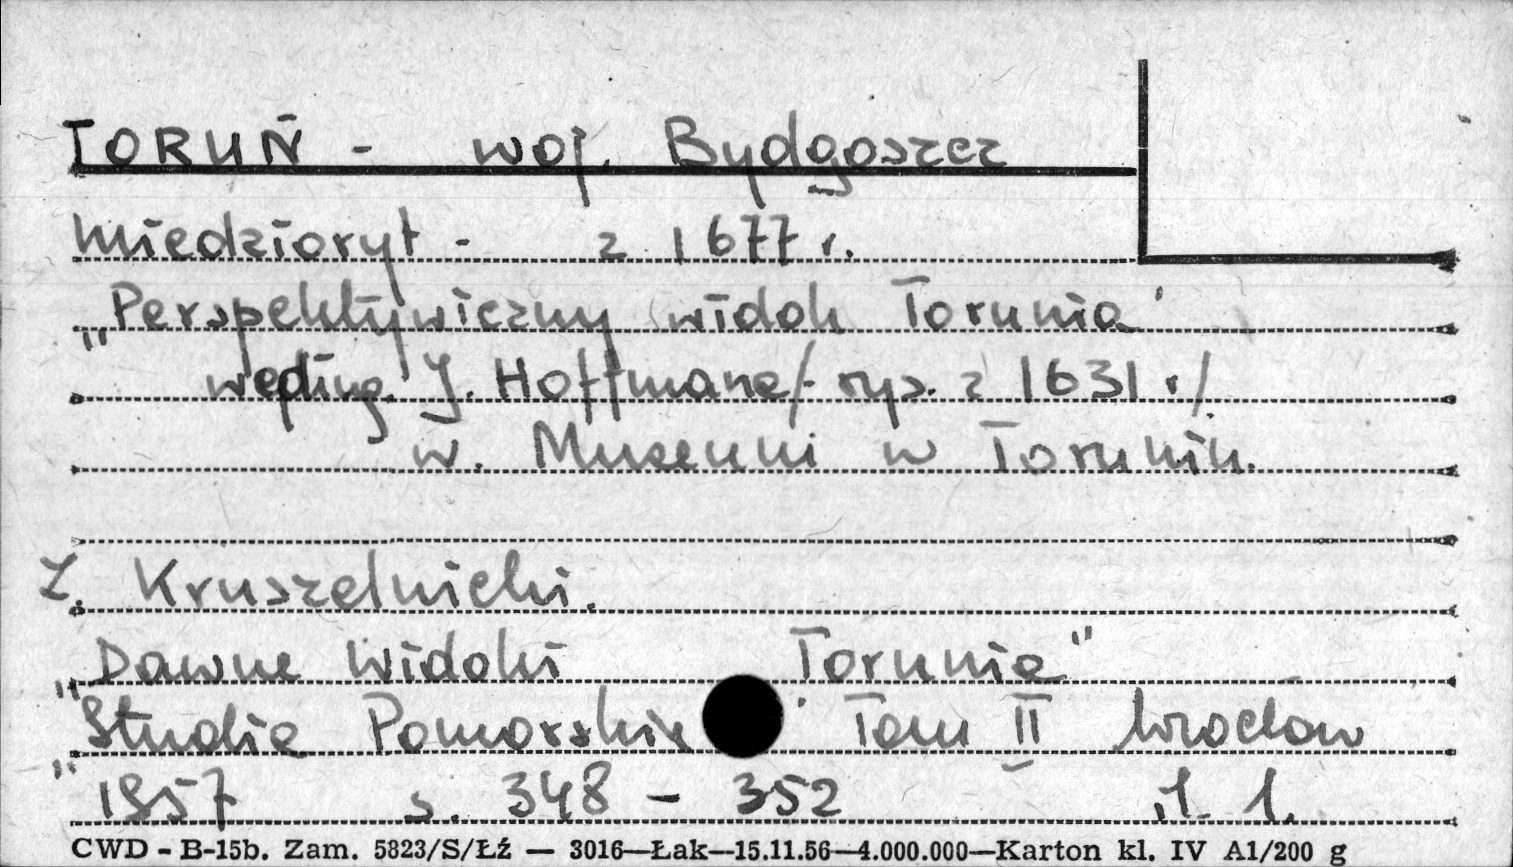 TORUŃ - woj. Bydgoszcz
miedzioryt - z 1677 r.
„Perspektywiczny widok Torunia"
według J. Hoffmana /- rys. z 1631 r/
w. Muzeum w Toruniu.
Z. Kruszelnicki.
„Dawne widoki Torunia"
„Studia Pomorskie" Tom II Wrocław
1957 s. 348 - 352
CWD - B-15b. Zam. 5823/S/Łź — 3016—Łak—15.11.56—4.000.000—Karton kl. IV A1/200 g